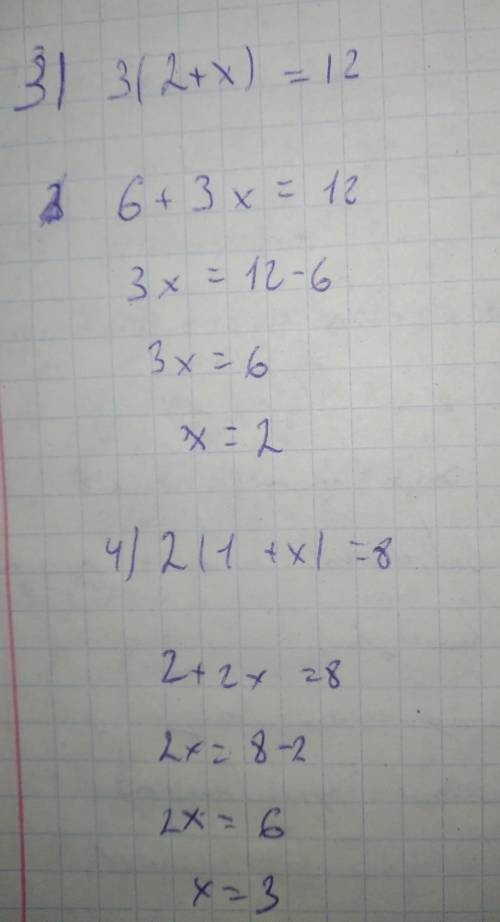 3) 3(2+x) = 12
6 + 3x = 12
3x = 12-6
3x = 6
x = 2
4) 2(1 +x) =8
2+2x =8
2x = 8-2
2x = 6
x = 3